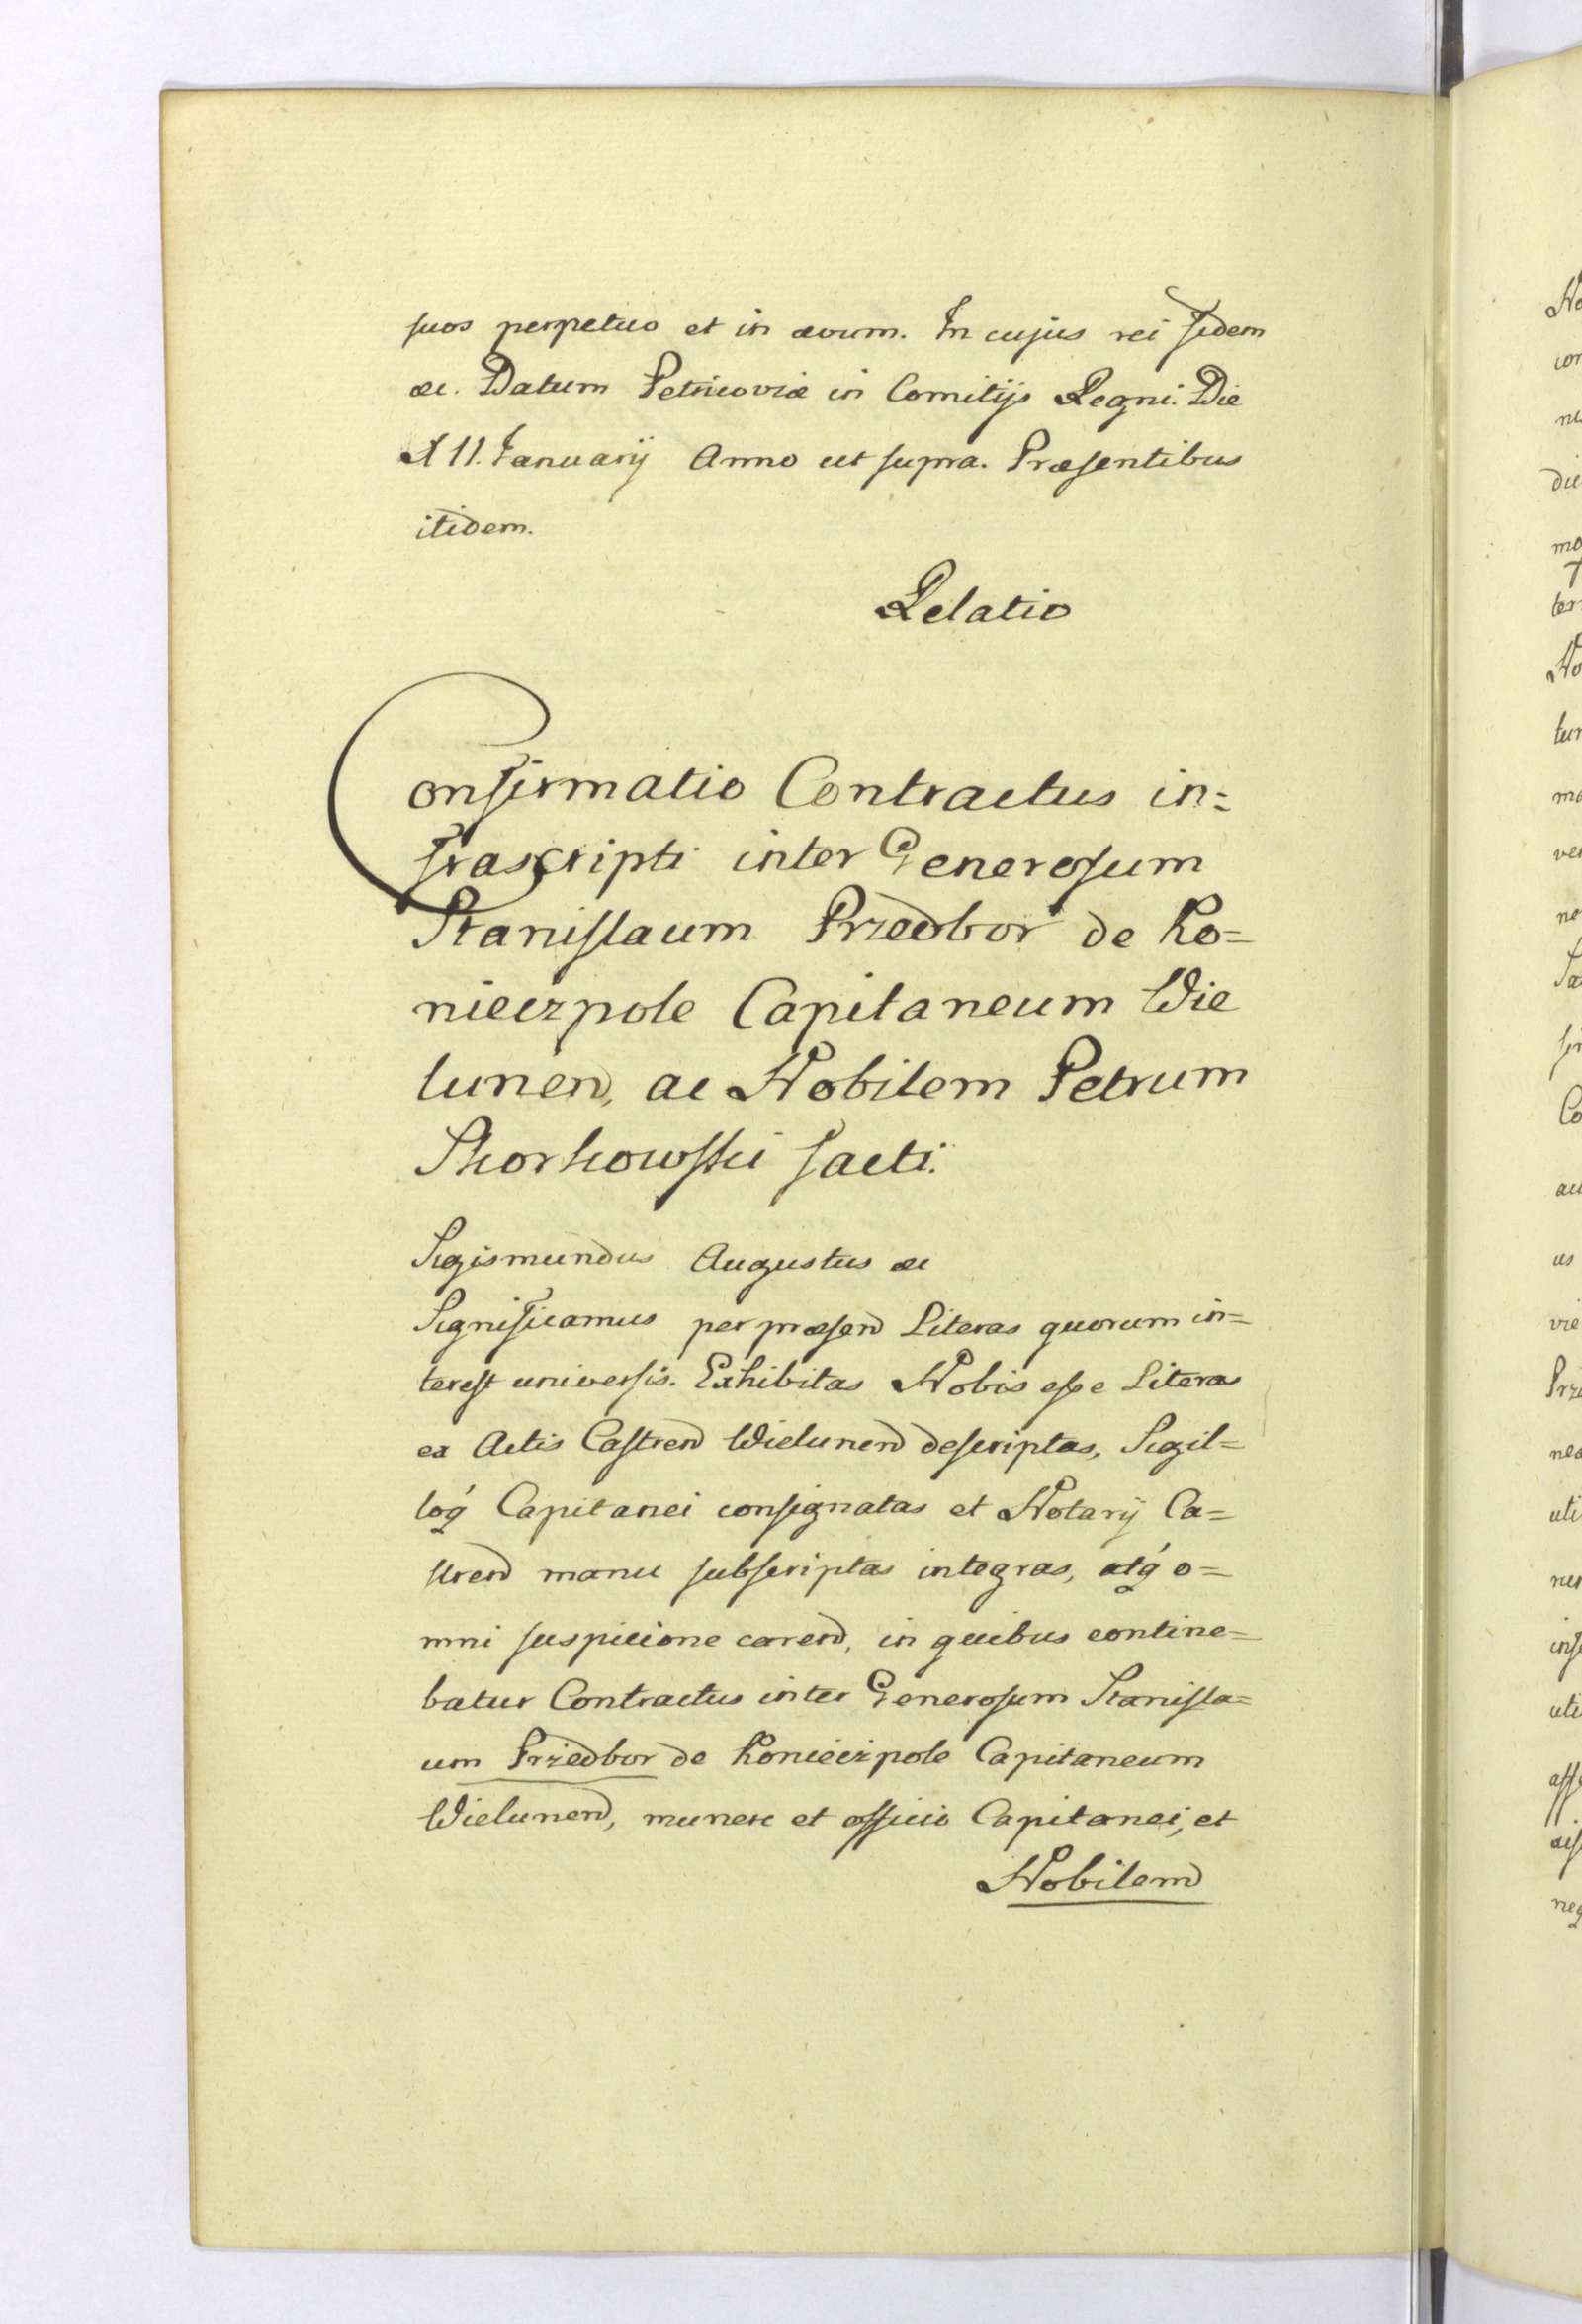 suos perpetuo et in ævum. In cujus rei fidem
æc. Datum Petricoviæ in Comitijs Regni. Die
XII. Januarij Anno ut supra. Præsentibus
itidem.
Relatio
Confirmatio Contractus in=
frascripti inter Generosum
Stanislaum Przedbor de Ko=
nieczpole Capitaneum Wie
lunen, ac Nobilem Petrum
Skorkowski facti.
Sigismundus Augustus æc
Significamus per præsen Literas quorum in=
terest universis. Exhibitas Nobis esse Literas
ex Actis Castren Wielunen descriptas, Sigil=
loq́ Capitanei consignatas et Notarij Ca=
stren manu subscriptas integras, atq́ o=
mni suspicione caren, in quibus contine=
batur Contractus inter Generosum Stanisla=
um Przedbor de Konieczpole Capitaneum
Wielunen, munere et officio Capitanei, et
Nobilem